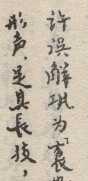 许误解巩为「裹
形声,是其長技,